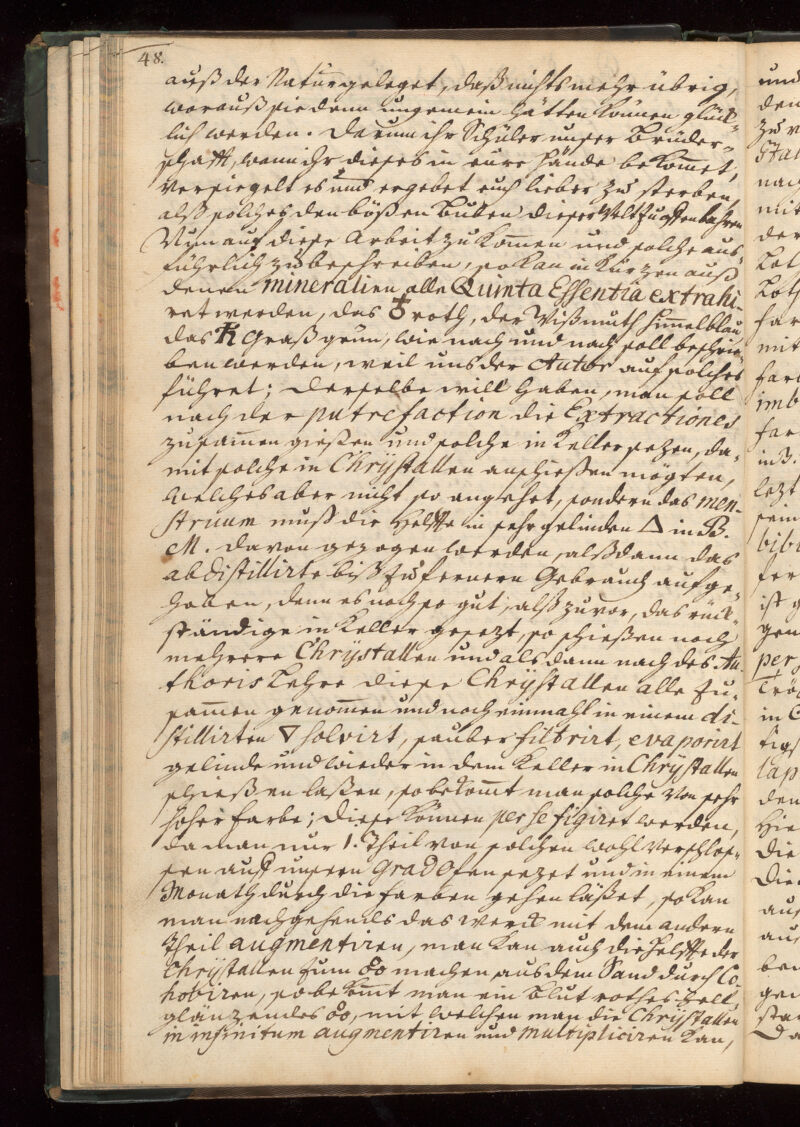 48.
auß der Natur geleget, daß nichts mehr übrig,
worauß sie denn ungemein hätten können glück-
lich werden. Darum ihr Schüler unser Brüder-
schafft, wenn ihr dieses in eure Hände bekommet,
versiegelt es und ergebet euch lieber zu sterben,
alß solches den bößen Buben dieser Welt zu offenbahren
Nun auf diese Arbeit zu kommen und solche aus-
führlich zu beschreiben, so kan in Kurzen auß
denen mineralien alle Quinta Essentia extrahi-
ret werden, das ♁ roth, der Wißmuth himmelblau
das ♄ graßgrün, wie nach und nach soll beschrie-
ben werden, weil uns der Autor auf solches
führet; derselbe will haben, man soll
nach der putrefaction die Extractiones
zusammen gießen und solche in Keller sezen, da-
mit solche in Chrÿstallen anschießen mögten,
welches aber nicht so angehet, sondern das men-
struum muß die Helffte in sehr gelinden △ in B.
M. davon gezogen werden, alßdann das
abdistillirte biß zu fernern Gebrauch aufge-
haben, denn es noch so gut, alß zuvor, das rück-
ständige in Keller gesezt, so schießen noch
mehrere Chrÿstallen und als dann nach des Au-
thoris Lehre diese Chrÿstallen alle zu-
sammen genommen und noch einmahl in einem di-
stillirten ▽ solvirt, sauber filtrirt, evaporirt
gelinde und wieder in dem Keller in Chrÿstallen
schießen laßen, so bekommt man solche von sehr
hoher Farbe; diese können per se figiret werden,
da man nur 1. Theil von solchen wohl verschloß-
sen auf unsern Grad Ofen sezet und in einem
Monath durch die Farben gehen läßet, so kan
man nachgehends das werck mit dem andern
Theil augmentiren, man kan auch die Helffte der
Chrÿstallen zum oo machen aus dem Sand durch Co-
hobiren, so bekommt man ein blut rothes hell
glänzendes oo, mit welchen man die Chrÿstallen
in infinitum augmentiren und multipliciren kan,